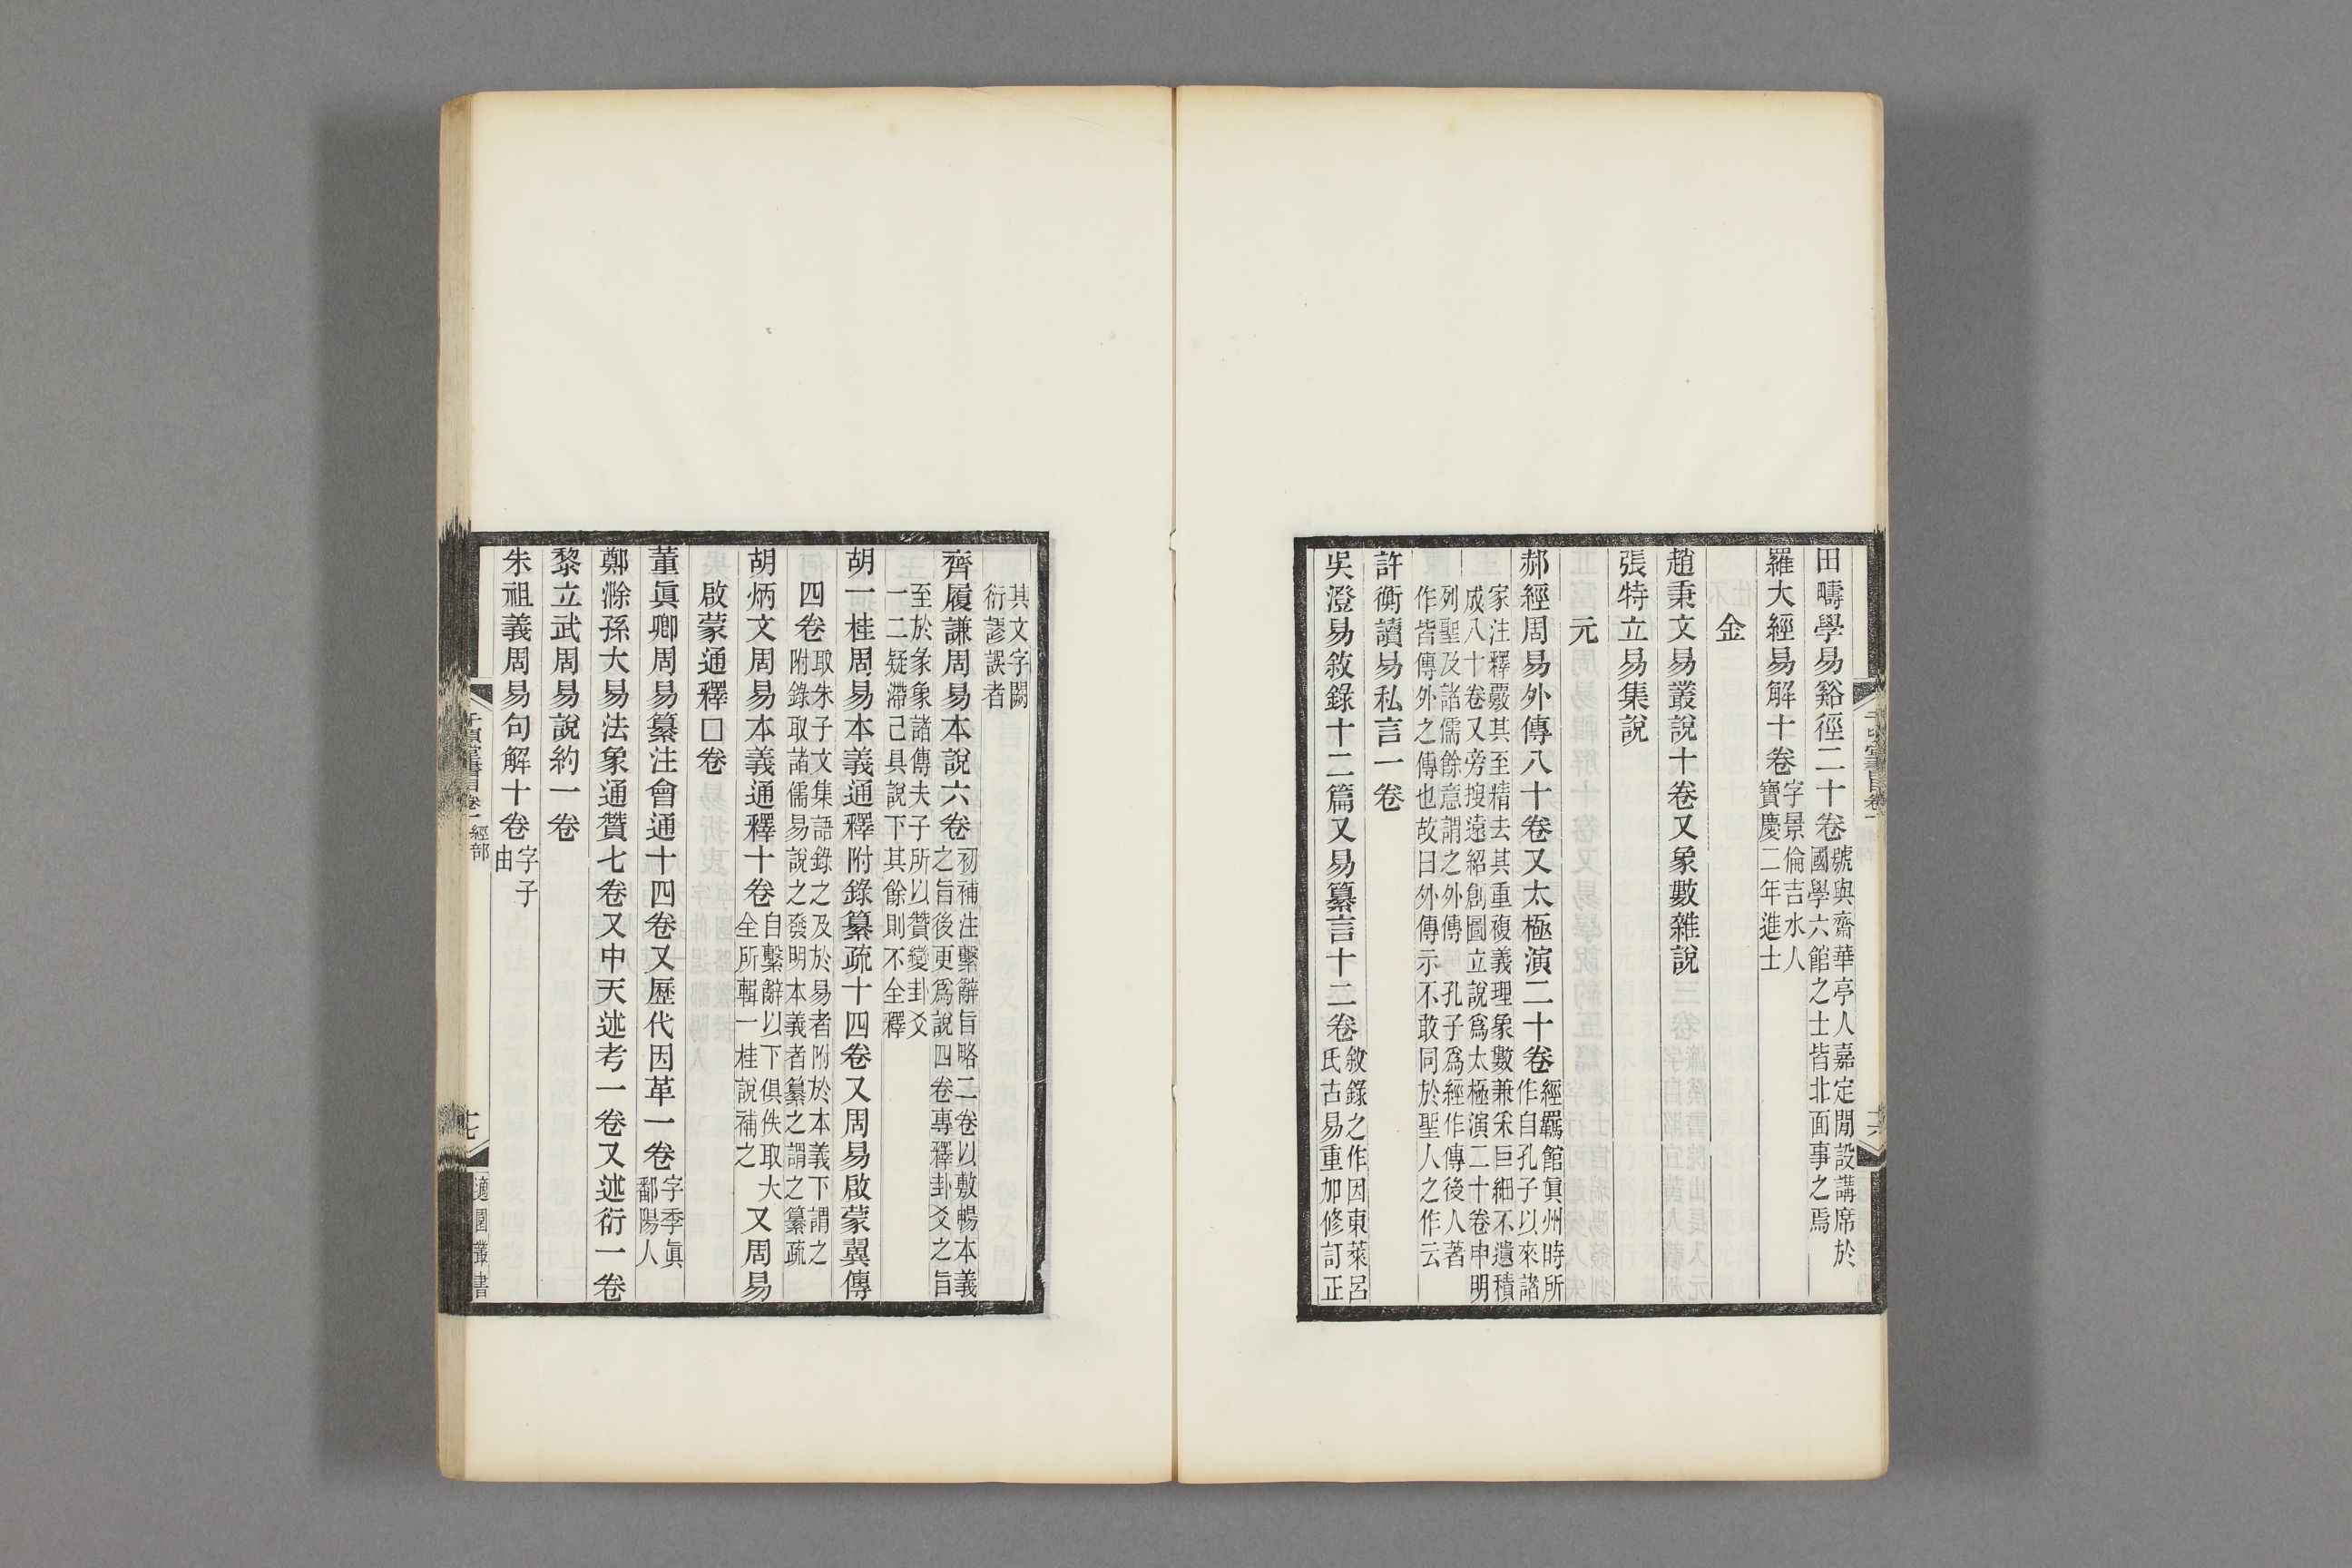 田疇學易谿徑二十卷號與齋華亭人嘉定閒設講席於國學六館之士皆北面事之焉
羅大經易解十卷字景倫吉水人寶慶二年進士
金
趙秉文易叢說十卷又象數雜說
張特立易集說
元
郝經周易外傳八十卷又太極演二十卷經羈館眞州時所作自孔子以來諸
家注釋覈其至精去其重複義理象數兼采巨細不遺積成八十卷又旁搜遠紹創圖立說爲太極演二十卷申明
列聖及諸儒餘意謂之外傳 孔子爲經作傳後人著作皆傳外之傳也故曰外傳示不敢同於聖人之作云
許衡讀易私言一卷
吳澄易敘錄十二篇又易纂言十二卷敘錄之作因東萊呂氏古易重加修訂正
其文字闕衍謬誤者
齊履謙周易本說六卷初補注繫辭旨略二卷以敷暢本義之旨後更爲說四卷專釋卦爻之旨
至於彖象諸傳夫子所以贊變卦爻一二疑滯己具說下其餘則不全釋
胡一桂周易本義通釋附錄纂疏十四卷又周易啟蒙翼傳
四卷取朱子文集語錄之及於易者附於本義下謂之附錄取諸儒易說之發明本義者纂之謂之纂疏
胡炳文周易本義通釋十卷自繫辭以下俱佚取大全所輯一桂說補之又周易
啟蒙通釋□卷
董眞卿周易纂注會通十四卷又歷代因革一卷字季眞鄱陽人
鄭滁孫大易法象通贊七卷又中天述考一卷又述衍一卷
黎立武周易說約一卷
朱祖義周易句解十卷字子由
千頃堂書目卷一 經部
十七
適園叢書